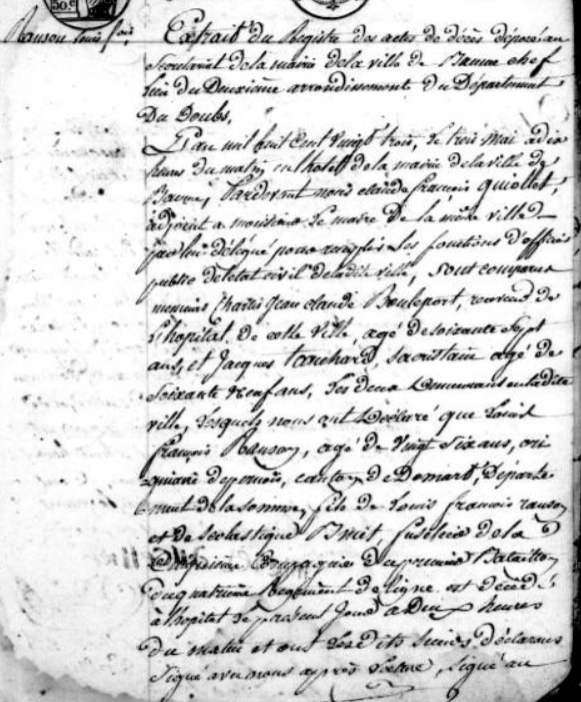 50c
Ranson Louis fois
Extrait du Registre des actes de décès déposé au
Secretariat de la mairie de la ville de Baume chef
lieu du Deuxième arrondissement du Département
Du Doubs,
L'an mil huit cent vingt trois, le trois Mai a dix
heures du matin en l'hotel de la mairie de la ville de
Baume, Pardevant nous claude francois Guiollot,
adjoint a monsieur le maire de la même ville
par lui délégué pour remplir les fonctions d'officier
public de l'etat civil de ladite ville, sont comparus
messieurs Charles Jean claude Bouleport, de
l'hopital de cette ville, agé de soixante sept
ans, et Jacques sacristain agé de
soixante neuf ans, les deux demeurans en ladite
ville, lesquels nous ont Déclaré que Louis
françois Ranson, agé de vingt six ans, ori
ginaire de pernois, canton de Domart Departe
ment de la somme, fils de Louis francois ranson
et de Scolastique Binet, fusilier de la
troisième Compagnie du premier Bataillon
du quatrième Regiment de ligne est Décédé
à l'hopital le présent jour a Deux heures
Du matin et ont lesdits sieurs déclarans
Signé avec nous après lecture, signé au